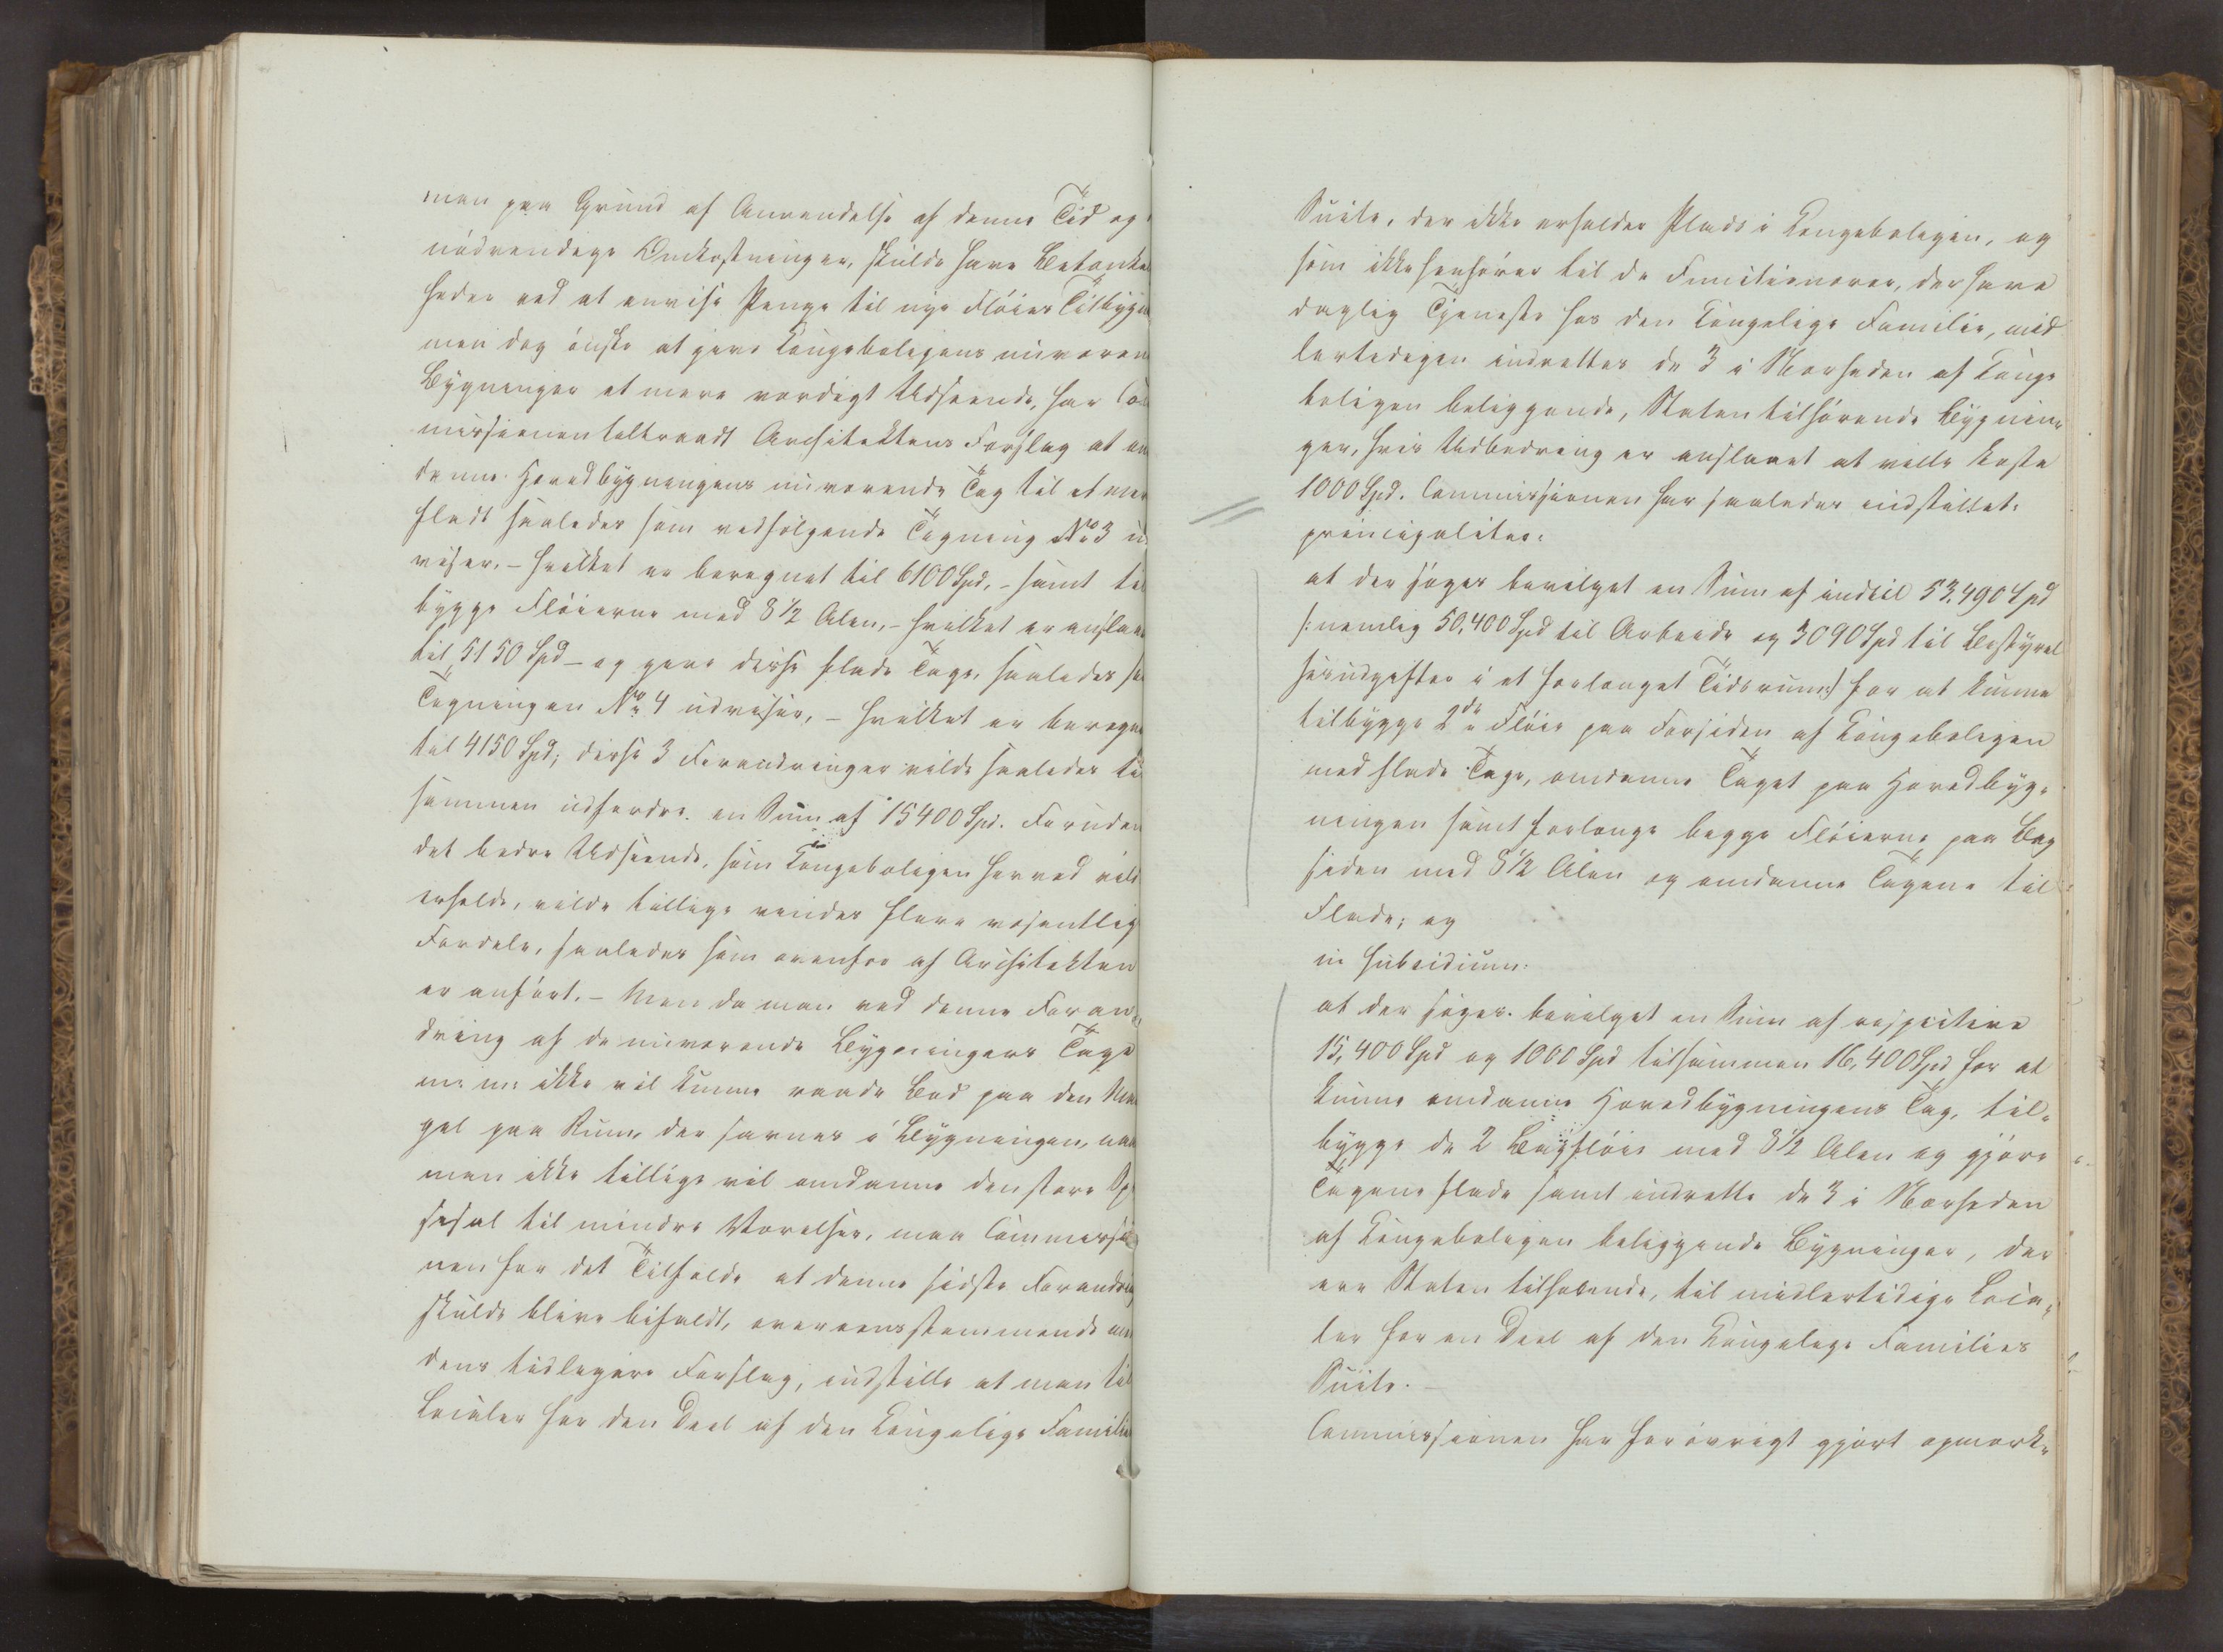 man paa Grund af Anvendelse af denne Tid og
nödvendige Omkostninger, skulde have Betænke
heder ved at anvise Penge til nye Flöies Tilbygn
men dog önske at give Kongeboligens nuværen
Bygninger et mere værdigt Udseende, har Com
missionen tiltraadt Architektens Forslag at om
danne Hovedbygningens nuværende Tag til et mer
fladt saaledes som vedfölgende Tegning No 3 u
viser, - hvilket er beregnet til 6100 Spd, - samt til
bygge Flöierne med 8 1/2 Alen, - hvilket er anslaae
til 5150 Spd - og gjøre disse flade Tage, saaledes so
Tegningen No 4 udviser, - hvilket er beregne
til 4150 Spd; disse 3 Forandringer vilde saaledes til
sammen udfordre en Sum af 15400 Spd. Foruden
det bedre Udseende, som Kongeboligen herved vild
erholde, vilde tillige vindes flere væsentlig
Fordele, saaledes som ovenfor af Architekten
er anfört. - Men da man ved denne Foran-
dring af de nuværende Bygningers Tage
ikke vil kunne raade Bod paa den Man
gel paa Rum, der savnes i Bygningen, naar
man ikke tillige vil omdanne den store Sp
sesal til mindre Værelser, maa Commissio
nen for det Tilfælde at denne sidste Forandring
skulde blive bifaldt, overeensstemmende med
dens tidligere Forslag, indstille at man til
Localer for den Deel af den Kongelige Familie
Suite, der ikke erholder Plads i Kongeboligen, og
som ikke henhörer til de Functionærer, der have
daglig Tjeneste hos den Kongelige Familie, mid
lertidigen indretter de 3 i Nærheden af Konge
boligen beliggende, Staten tilhörende Bygnin-
ger, hvis Udbedring er anslaaet at ville koste
1000 Spd. Commissionen har saaledes indstillet:
principaliter:
at der söges bevilget en Sum af indtil 53,490 Spd
/: nemlig 50,400 Spd til Arbeide og 3090 Spd til Bestyrel
sesudgifter i et forlænget Tidsrum :/ for at kunne
tilbygge 2de Flöie paa Forsiden af Kongeboligen
med flade Tage, omdanne Taget paa Hovedbyg-
ningen samt forlænge begge Flöierne paa Bag
siden med 8 1/2 Alen og omdanne Tagene til
Flade; og
in subsidium:
at der söges bevilget en Sum af respective
15,400 Spd og 1000 Spd tilsammen 16,400 Spd for at
kunne omdanne Hovedbygningens Tag, til-
bygge de 2 Bagflöie med 8 1/2 Alen og gjöre
Tagene flade samt indrette de 3 i Nærheden
af Kongeboligen beliggende Bygninger, der
ere Staten tilhörende, til midlertidige Loca-
ler for en Deel af den Kongelige Families
Suite. -
Commissionen har forövrigt gjort opmærk-